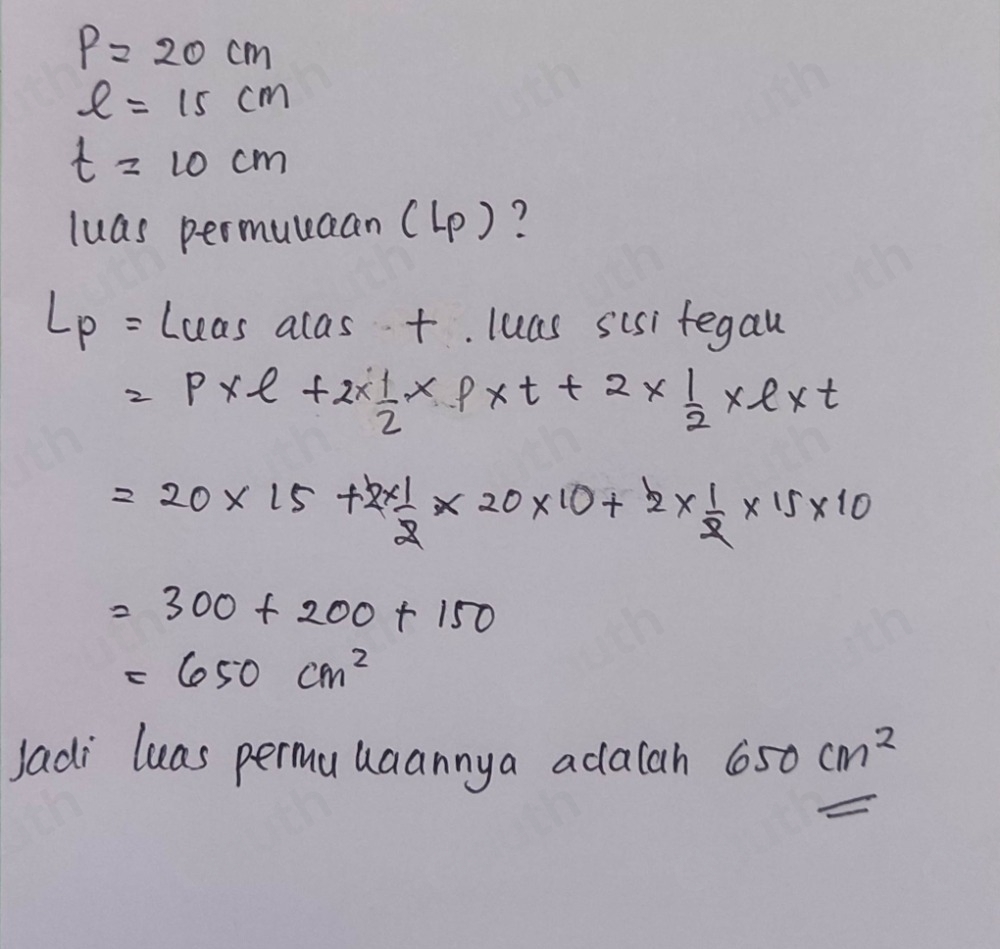 P = 20 cm
l = 15 cm
t = 10 cm
luas permukaan (Lp)?
Lp = Luas alas + . luas sisi tegak
= P x l + 2x 1/2 x p x t + 2 x 1/2 x l x t
= 20 x 15 + 2x 1/2 x 20 x 10 + 2 x 1/2 x 15 x 10
= 300 + 200 + 150
= 650 cm²
Jadi luas permukaannya adalah 650 cm²